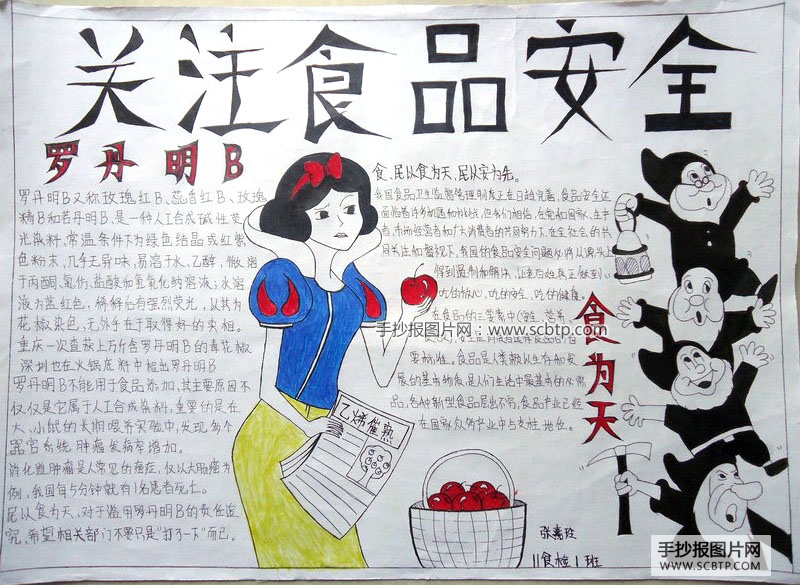 关注食品安全
罗丹明B
罗丹明B又称玫瑰红B、蕊香红B、玫瑰
精B和若丹明B,是一种人工合成碱性荧
光染料,常温条件下为绿色结晶或红紫
色粉末,几乎无异味,易溶于水、乙醇,微溶
于丙酮、氯仿、盐酸和氢氧化钠溶液;水溶
液为蓝红色,稀释后有强烈荧光,以其为
花椒染色,无外乎在于取得好的卖相。
重庆一次查获上万斤含罗丹明B的青花椒
深圳也在火锅底料中检出罗丹明B
罗丹明B不能用于食品添加,其主要原因不
仅仅是它属于人工合成染料,重要的是在
大、小鼠的长期喂养实验中,发现多个
器官系统肿瘤发病率增加。
消化道肿瘤是人常见的癌症,仅以大肠癌为
例,我国每5分钟就有1名患者死亡。
民以食为天、对于滥用罗丹明B的责任追
究,希望相关部门不要只是“打了一下”而已。
食、民以食为天,民以安为先。
我国食品卫生监督管理制度正在日趋完善,食品安全正
面临着许多机遇和挑战,但我们相信,在党和国家、生产
者、市场经营者和广大消费者的共同努力下,在全社会的共
同关注和监视下,我国的食品安全问题必将从源头上
得到遏制和解决,让老百姓真正做到
吃的放心、吃的安全、吃的健康。
在食品的三要素中(安全、营养、
要标准。食品是人类赖以生存和发
展的基本物质,是人们生活中最基本的必需
品,各种新型食品层出不穷,食品产业已经
在国家众多产业中占支柱地位。
食为天
乙烯催熟
手抄报图片网:www.scbtp.com
11食检1班
手抄报图片网
WWW.SCBTP.COM